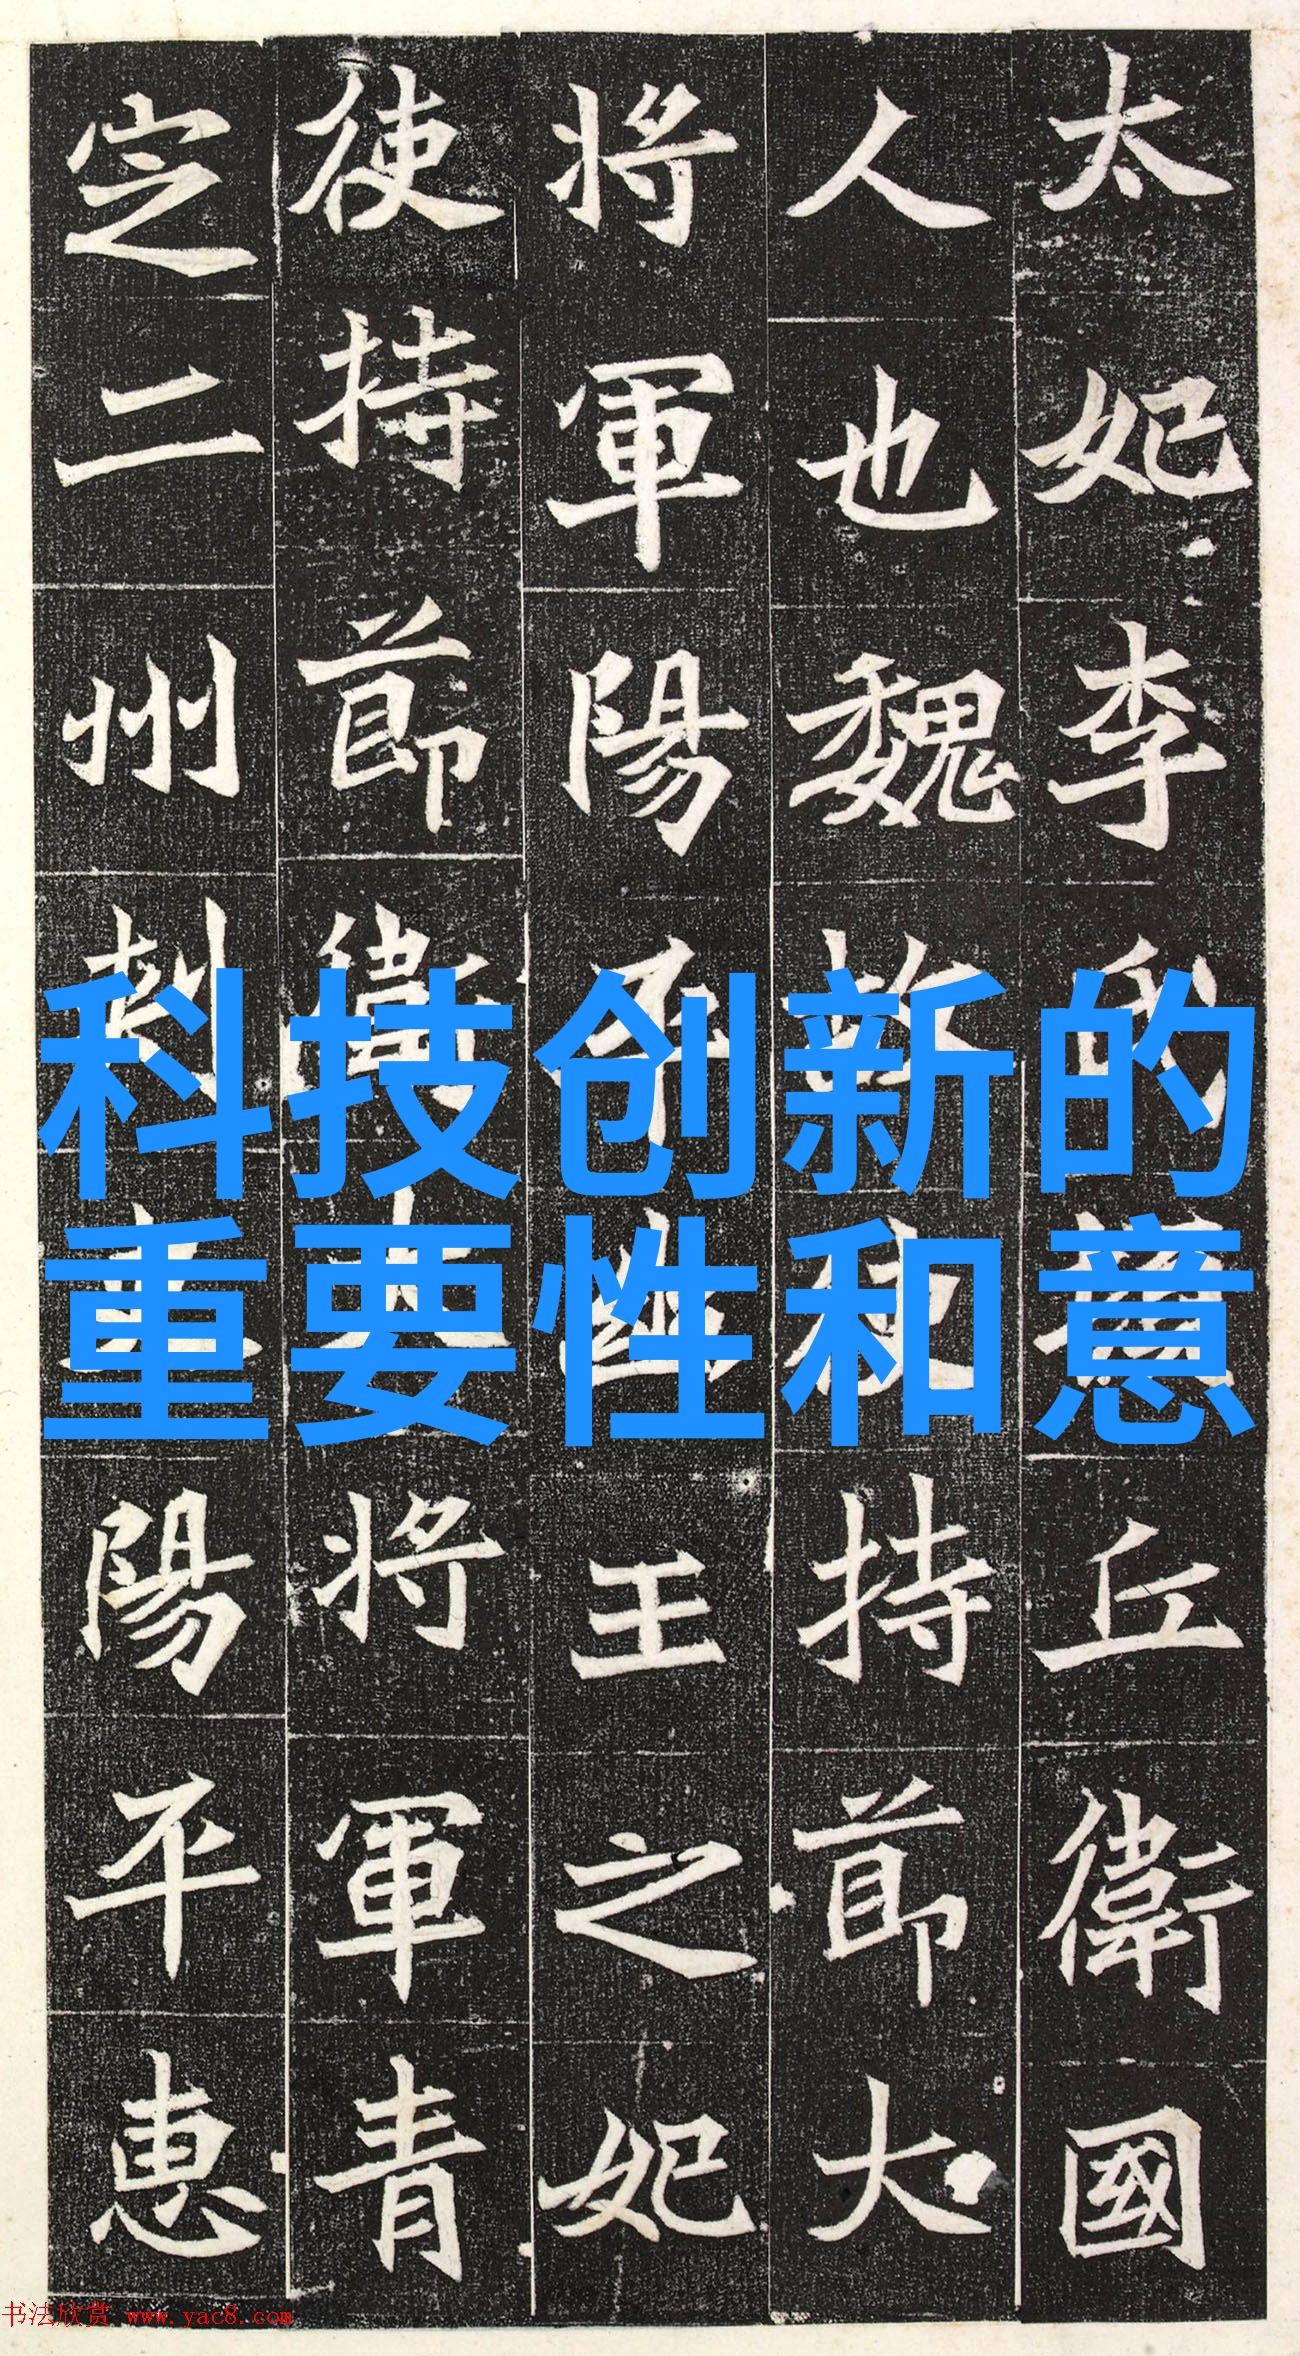 太妃李氏丘衛國
人也魏故使持節大
將軍陽平幽王之妃
使持節衛大將軍青
定二州刺史陽平惠
科技创新的
重要性和意
书法欣赏 www.yac8.com